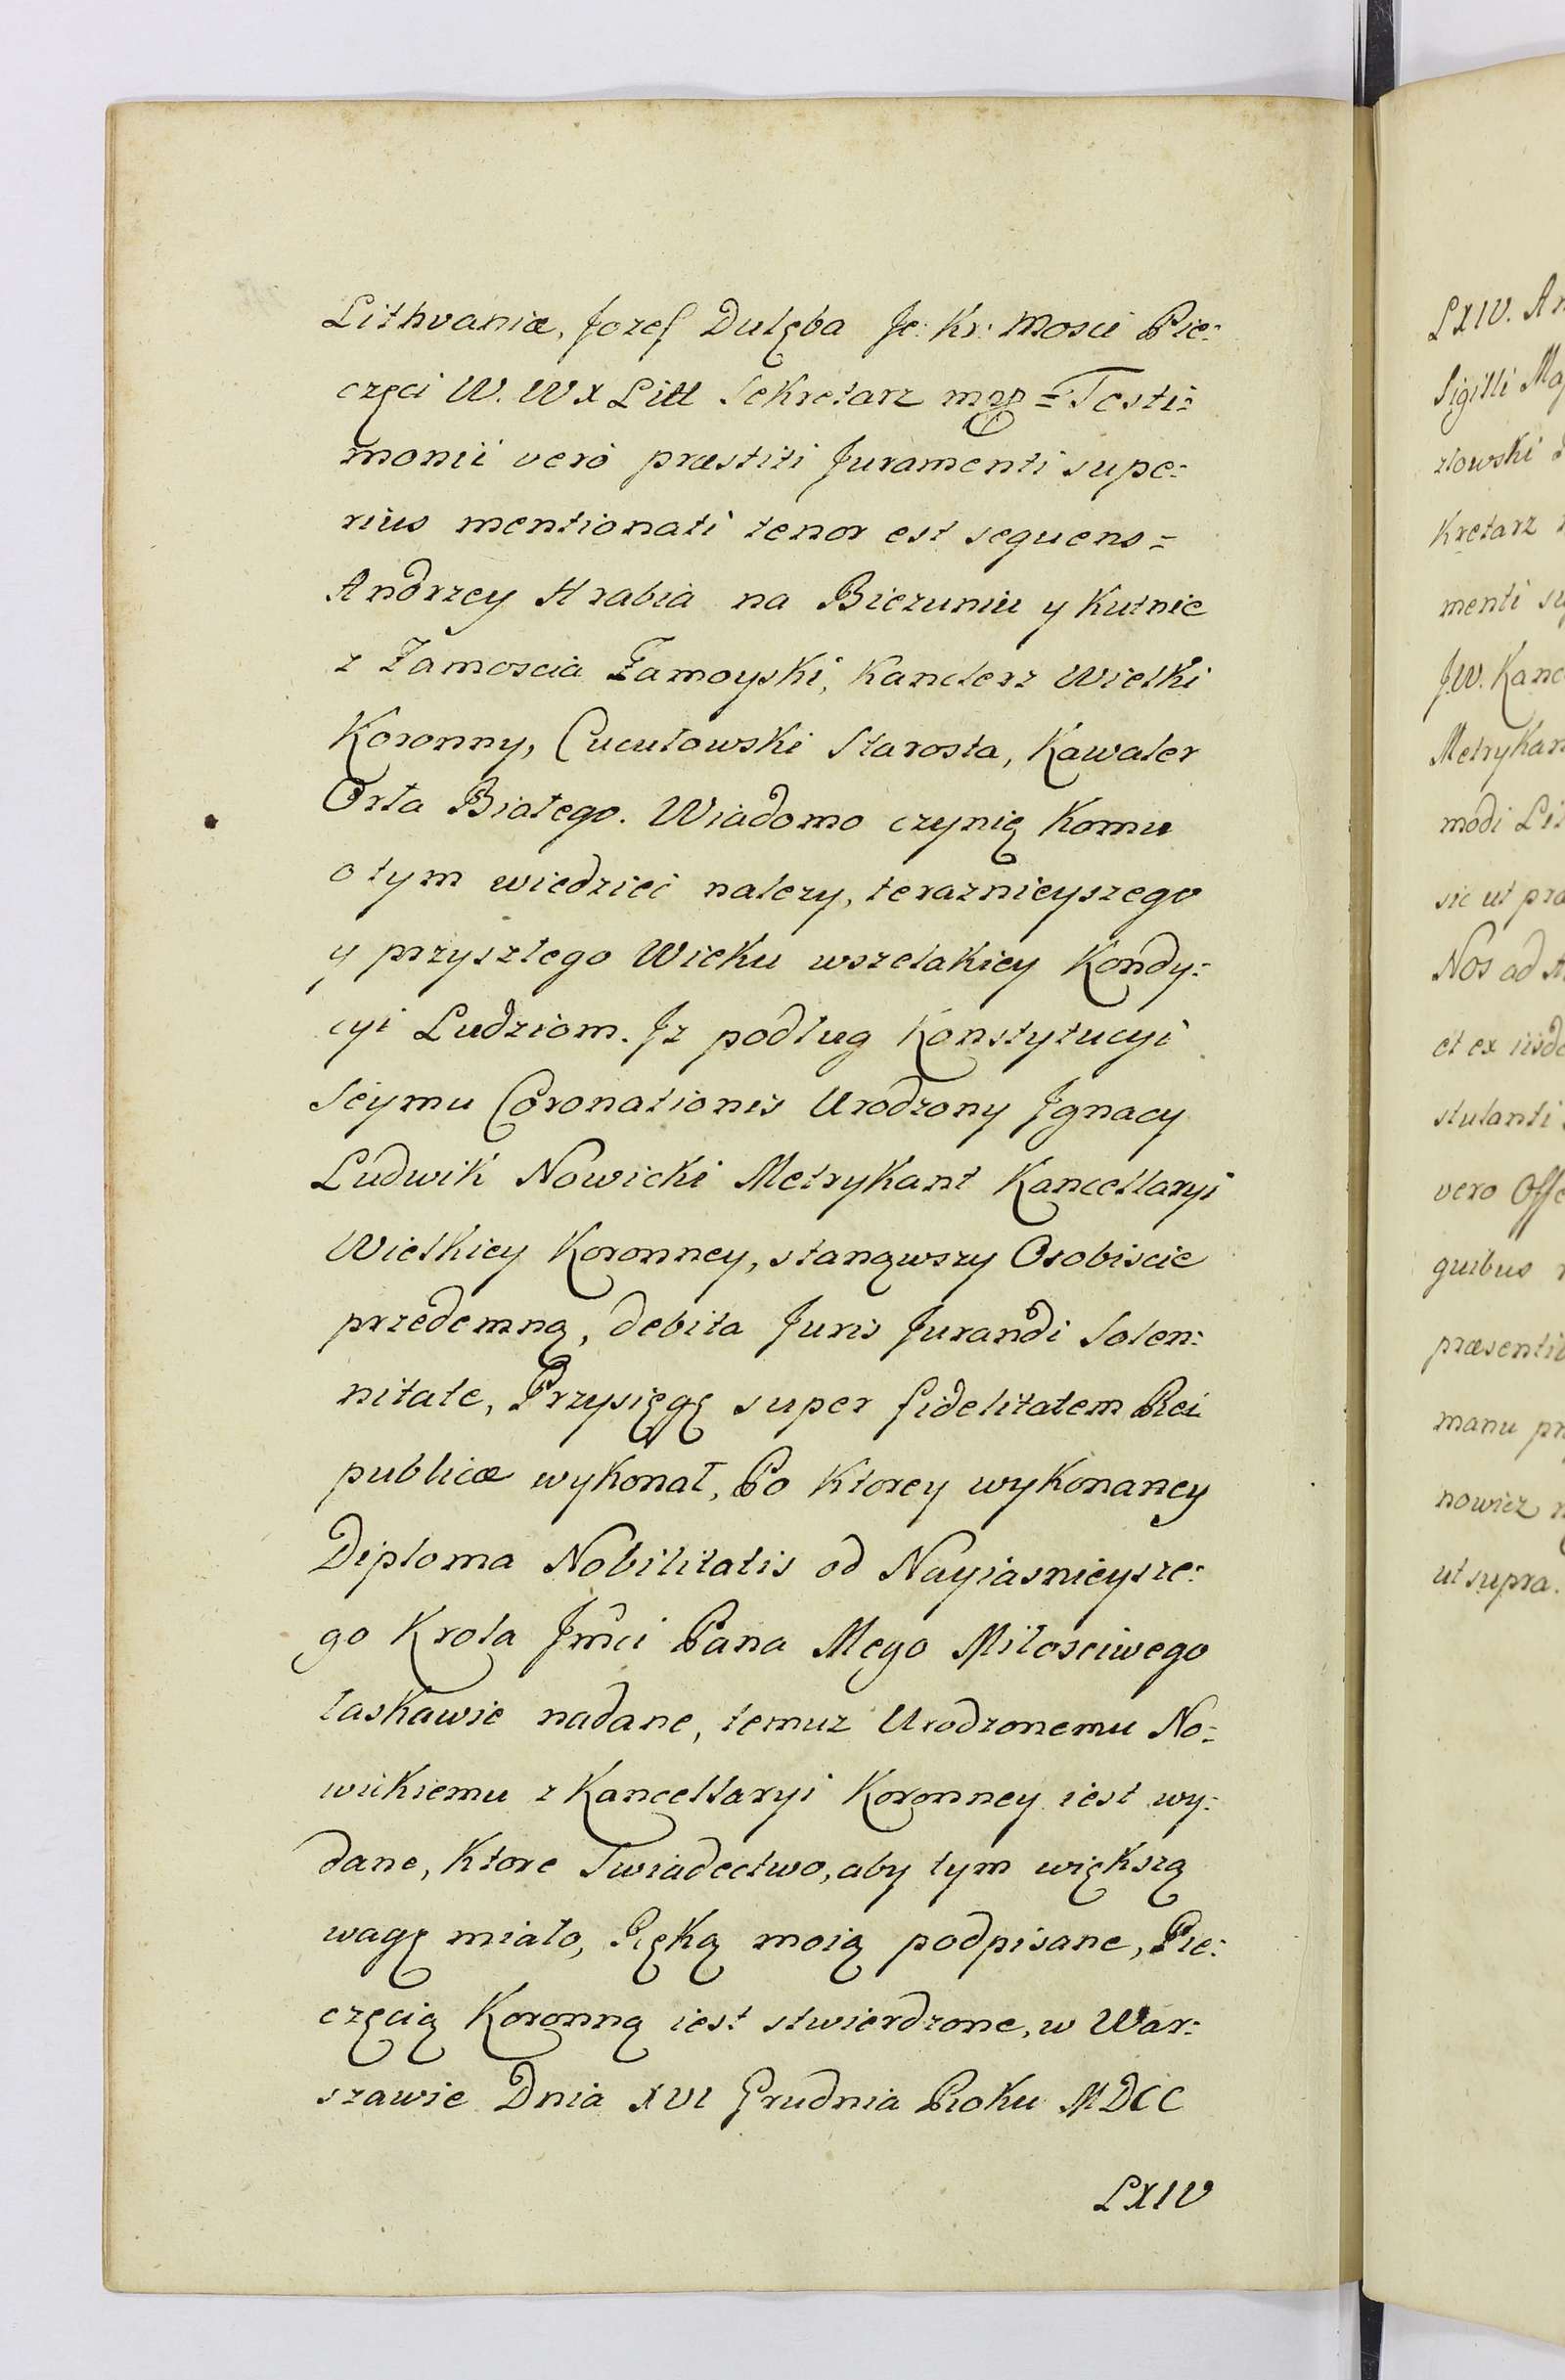 Lithvaniæ, Jozef Dulęba Je: Kr: Mosci Pie:
częci W. W X Litt Sekretarz mpp = Testi:
monii verò præstiti Juramenti supe:
rius mentionati tenor est sequens =
Andrzey Hrabia na Biezuniu y Kutnie
z Zamoscia Zamoyski, Kanclerz Wielki
Koronny, Cucułowski Starosta, Kawaler
Orła Białego. Wiadomo czynię komu
o tym wiedzieć nalezy, teraznieyszego
y przyszłego Wieku wszelakiey Kondy:
cyi Ludziom. Jz podług Konstytucyi
Seymu Coronationis Urodzony Jgnacy
Ludwik Nowicki Metrykant Kancellaryi
Wielkiey Koronney, stanąwszy Osobiscie
przedemną, debita Juris Jurandi Solen:
nitate, Przysięgę super fidelitatem Rei
publicæ wykonał, Po ktorey wykonaney
Diploma Nobilitatis od Nayiasnieysze:
go Krola Jmci Pana Mego Miłosciwego
łaskawie nadane, temuz Urodzonemu No:
wickiemu z Kancellaryi Koronney iest wy:
dane, ktore Swiadectwo, aby tym większą
wagę miało, Ręką moią podpisane, Pie:
częcią Koronną iest stwierdzone, w War:
szawie Dnia XVI Grudnia Roku MDCC
LXIV
LXIV. An
Sigilli Maj
złowski
kretarz
menti su
JW. Kanc
Metrykan
modi Lit
sic ut præ
Nos ad A
et ex iisde
stulanti
vero Offi
quibus
præsentib
manu pr
nowicz
ut supra.